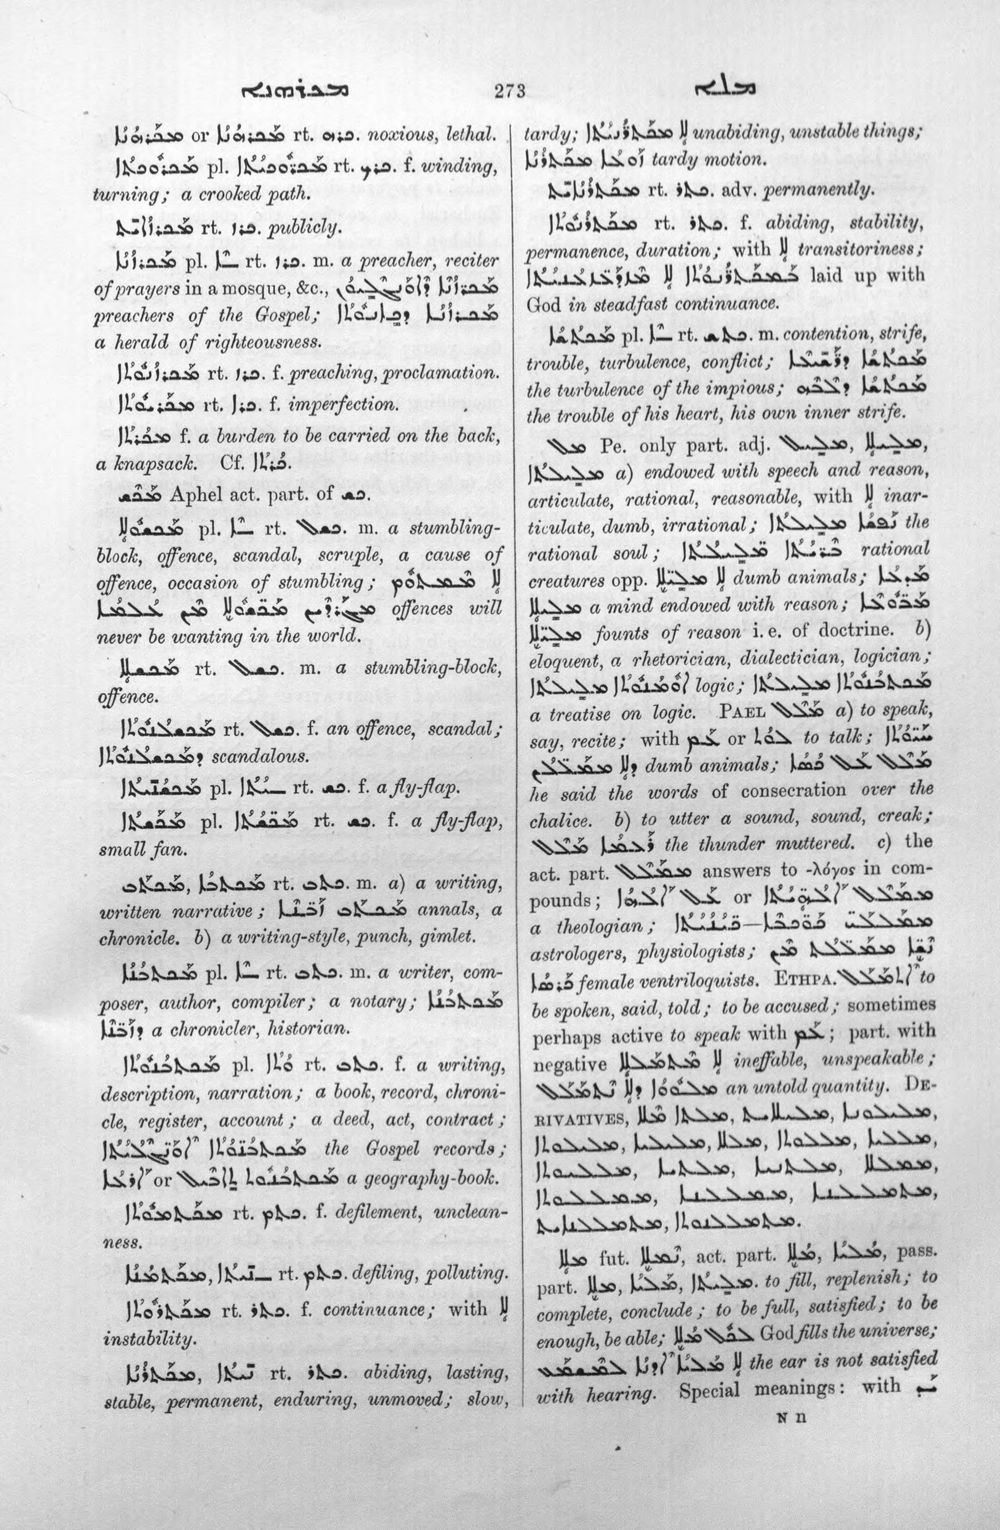 ܡܟܪܗܢܐ 273 ܡܠܐ
ܡܟܪܗܢܐ or ܡܟܪܗܢܐ rt. ܟܪܗ. noxious, lethal.
ܡܟܪܘܟܬܐ pl. ܡܟܪܘܟܝܬܐ rt. ܟܪܟ. f. winding,
turning; a crooked path.
ܡܟܪܙܐܝܬ rt. ܟܪܙ. publicly.
ܡܟܪܙܢܐ pl. ܢܐ rt. ܟܪܙ. m. a preacher, reciter
of prayers in a mosque, &c., ܡܟܪܙܢܐ ܕܐܘܢܓܠܝܘܢ
preachers of the Gospel; ܡܟܪܙܢܐ ܕܟܐܢܘܬܐ
a herald of righteousness.
ܡܟܪܙܢܘܬܐ rt. ܟܪܙ. f. preaching, proclamation.
ܡܟܪܝܘܬܐ rt. ܟܪܐ. f. imperfection.
ܡܟܪܬܐ f. a burden to be carried on the back,
a knapsack. Cf. ܟܪܬܐ.
ܡܟܫ Aphel act. part. of ܟܫ.
ܡܟܫܘܠܐ pl. ܠܐ rt. ܟܫܠ. m. a stumbling-
block, offence, scandal, scruple, a cause of
offence, occasion of stumbling; ܠܐ ܡܫܡܬܘܡ
ܡܓܪܕܝܢ ܡܟܫܘܠܐ ܡܢ ܥܠܡܐ offences will
never be wanting in the world.
ܡܟܫܠܐ rt. ܟܫܠ. m. a stumbling-block,
offence.
ܡܟܫܠܢܘܬܐ rt. ܟܫܠ. f. an offence, scandal;
ܕܡܟܫܠܢܘܬܐ scandalous.
ܡܟܫܢܝܬܐ pl. ܢܝܬܐ rt. ܟܫ. f. a fly-flap.
ܡܟܫܬܐ pl. ܡܟܫܬܐ rt. ܟܫ. f. a fly-flap,
small fan.
ܡܟܬܒ, ܡܟܬܒܐ rt. ܟܬܒ. m. a) a writing,
written narrative; ܡܟܬܒ ܙܒܢܐ annals, a
chronicle. b) a writing-style, punch, gimlet.
ܡܟܬܒܢܐ pl. ܢܐ rt. ܟܬܒ. m. a writer, com-
poser, author, compiler; a notary; ܡܟܬܒܢܐ
ܕܙܒܢܐ a chronicler, historian.
ܡܟܬܒܢܘܬܐ pl. ܘܬܐ rt. ܟܬܒ. f. a writing,
description, narration; a book, record, chroni-
cle, register, account; a deed, act, contract;
ܡܟܬܒܢܘܬܐ ܐܘܢܓܠܝܬܐ the Gospel records;
ܐܪܥܐ or ܬܐܒܝܠ ܡܟܬܒܢܘܬ a geography-book.
ܡܟܬܡܘܬܐ rt. ܟܬܡ. f. defilement, unclean-
ness.
ܡܟܬܡܢܐ, ܢܝܬܐ rt. ܟܬܡ. defiling, polluting.
ܡܟܬܪܘܬܐ rt. ܟܬܪ. f. continuance; with ܠܐ
instability.
ܡܟܬܪܢܐ, ܢܝܬܐ rt. ܟܬܪ. abiding, lasting,
stable, permanent, enduring, unmoved; slow,
tardy; ܠܐ ܡܟܬܪܢܝܬܐ unabiding, unstable things;
ܙܘܥܐ ܡܟܬܪܢܐ tardy motion.
ܡܟܬܪܢܐܝܬ rt. ܟܬܪ. adv. permanently.
ܡܟܬܪܢܘܬܐ rt. ܟܬܪ. f. abiding, stability,
permanence, duration; with ܠܐ transitoriness;
laid up with
God in steadfast continuance.
ܡܟܬܫܐ pl. ܫܐ rt. ܟܬܫ. m. contention, strife,
trouble, turbulence, conflict; ܡܟܬܫܐ ܕܪܫܝܥܐ
the turbulence of the impious; ܡܟܬܫܐ ܕܠܒܗ
the trouble of his heart, his own inner strife.
ܡܠ Pe. only part. adj. ܡܠܝܠ, ܡܠܝܠܐ,
ܡܠܝܠܬܐ a) endowed with speech and reason,
articulate, rational, reasonable, with ܠܐ inar-
ticulate, dumb, irrational; ܢܦܫܐ ܡܠܝܠܬܐ the
rational soul; ܒܪܝܬܐ ܡܠܝܠܬܐ rational
creatures opp. ܠܐ ܡܠܝܠܐ dumb animals; ܡܕܥܐ
ܡܠܝܠܐ a mind endowed with reason; ܡܒܘܥܐ
ܡܠܝܠܐ founts of reason i. e. of doctrine. b)
eloquent, a rhetorician, dialectician, logician;
ܐܘܡܢܘܬܐ ܡܠܝܠܬܐ logic; ܡܟܬܒܢܘܬܐ ܡܠܝܠܬܐ
a treatise on logic. PAEL ܡܠܠ a) to speak,
say, recite; with ܥܡ or ܠܘܬ to talk; ܚܝܘܬܐ
ܕܠܐ ܡܡܠܠܢ dumb animals; ܡܠܠ ܥܠ ܟܣܐ
he said the words of consecration over the
chalice. b) to utter a sound, sound, creak;
ܪܥܡܐ ܡܠܠ the thunder muttered. c) the
act. part. ܡܡܠܠ answers to -λόγος in com-
pounds; ܡܡܠܠ ܐܠܗܝܬܐ or ܥܠ ܐܠܗܐ
a theologian; ܡܡܠܠܝ ܟܘܟܒܐ—ܟܝܢܝܬܐ
astrologers, physiologists; ܡܡܠܠܬ ܡܢ
ܟܪܣܐ female ventriloquists. ETHPA. ܐܬܡܠܠ to
be spoken, said, told; to be accused; sometimes
perhaps active to speak with ܥܡ; part. with
negative ܠܐ ܡܬܡܠܠܐ ineffable, unspeakable;
ܡܠܘܐܐ ܕܠܐ ܢܬܡܠܠ an untold quantity. DE-
RIVATIVES,
ܡܠܐ fut. ܢܡܠܐ, act. part. ܡܠܐ, ܡܠܝܐ, pass.
part. ܡܠܐ, ܡܠܝܐ, ܡܠܝܬܐ. to fill, replenish; to
complete, conclude; to be full, satisfied; to be
enough, be able; God fills the universe;
ܠܐ ܡܠܝܐ ܐܕܢܐ ܠܡܫܡܥ the ear is not satisfied
with hearing. Special meanings: with
N n